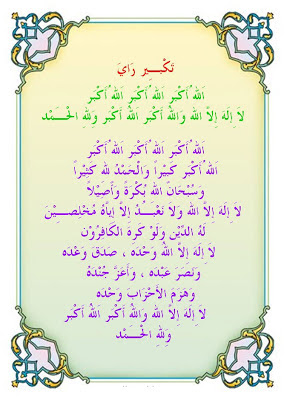 تَكْبِــيْر رَايَ
اَللهُ اَكْبَر اَللهُ اَكْبَر اَللهُ اَكْبَر
لاَ اِلَهَ اِلاَّ الله وَاللهُ اَكْبَر اَللهُ اَكْبَر وَللهِ الْحَـــمْد
اَللهُ اَكْبَر اَللهُ اَكْبَر اَللهُ اَكْبَر
اَللهُ اَكْبَر كَبِيْراً وَالْحَمْدُ للهِ كَثِيْراً
وَسُبْحَانَ اللهِ بُكْرَةً وَأَصِيْلاً
لاَ اِلَهَ اِلاَّ الله وَلاَ نَعْبُــدُ اِلاَّ اِيَّاهُ مُخْلِصِــيْنَ
لَهُ الدِّيْن وَلَوْ كَرِهَ الْكَافِرُوْن
لاَ اِلَهَ اِلاَّ اللهُ وَحْدَه ، صَدَقَ وَعْدَه
وَنَصَرَ عَبْدَه ، وَأَعَزَّ جُنْدَهُ
وَهَزَمَ الأَحْزَابَ وَحْدَه
لاَ اِلَهَ اِلاَّ اللهُ وَاللهُ اَكْبَر اَللهُ اَكْبَر
وَللهِ الْحَـــمْد